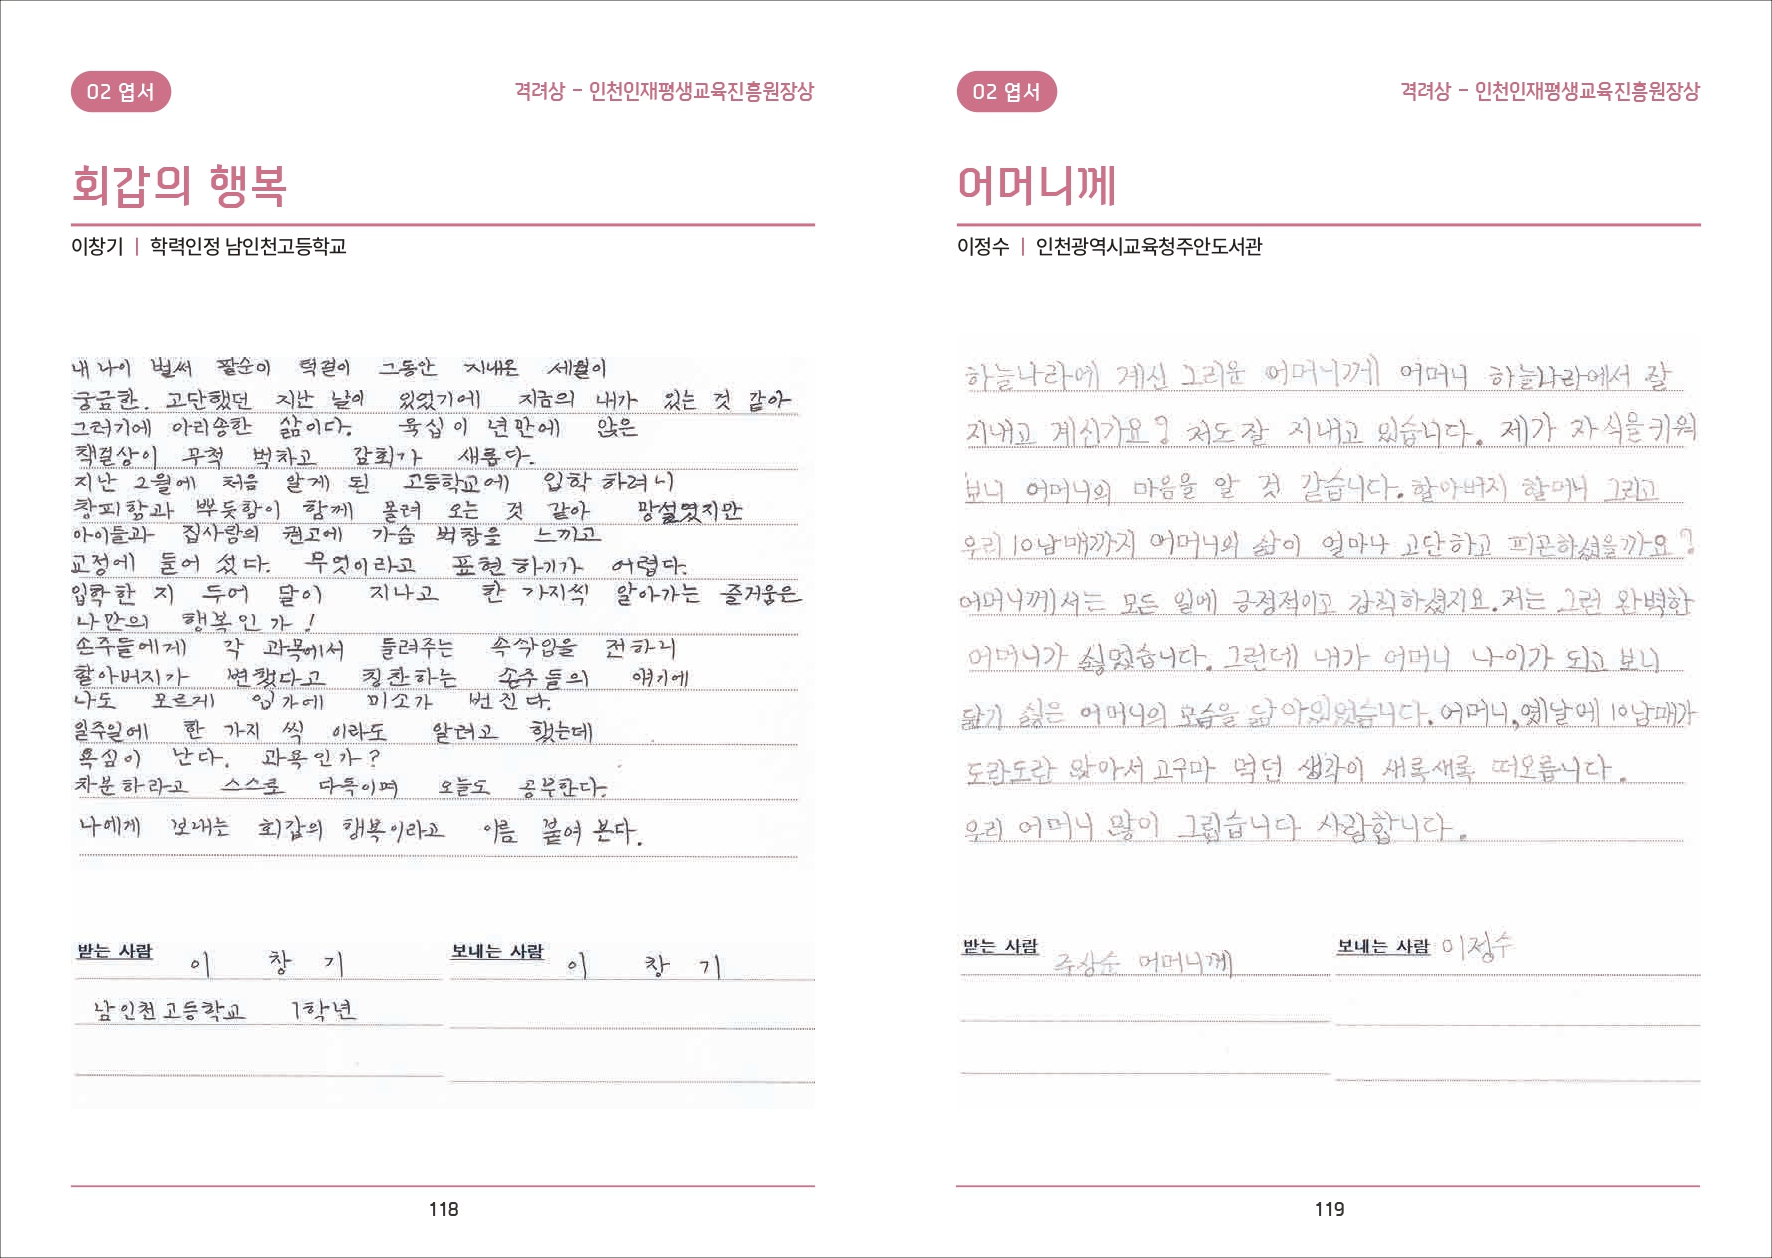 02 엽서
격려상 - 인천인재평생교육진흥원장상
회갑의 행복
이창기 | 학력인정 남인천고등학교
내 나이 벌써 팔순이 턱걸이 그동안 지내온 세월이
궁금한. 고단했던 지난 날이 있었기에 지금의 내가 있는 것 같아
그러기에 아리송한 삶이다. 육십이 년만에 앉은
책걸상이 무척 벅차고 감회가 새롭다.
지난 2월에 처음 알게 된 고등학교에 입학 하려니
창피함과 뿌듯함이 함께 몰려 오는 것 같아 망설였지만
아이들과 집사람의 권고에 가슴 벅참을 느끼고
교정에 들어 섰다. 무엇이라고 표현하기가 어렵다.
입학한 지 두어 달이 지나고 한 가지씩 알아가는 즐거움은
나만의 행복인가!
손주들에게 각 과목에서 들려주는 속삭임을 전하니
할아버지가 변했다고 칭찬하는 손주들의 얘기에
나도 모르게 입가에 미소가 번진다.
일주일에 한 가지 씩 이라도 알려고 했는데
욕심이 난다. 과욕인가?
차분하라고 스스로 다독이며 오늘도 공부한다.
나에게 보내는 회갑의 행복이라고 이름 붙여 본다.
받는 사람 이 창 기
남인천고등학교 1학년
보내는 사람 이 창 기
118
02 엽서
격려상 - 인천인재평생교육진흥원장상
어머니께
이정수 | 인천광역시교육청주안도서관
하늘나라에 계신 그리운 어머니께 어머니 하늘나라에서 잘
지내고 계신가요? 저도 잘 지내고 있습니다. 제가 자식을 키워
보니 어머니의 마음을 알 것 같습니다. 할아버지 할머니 그리고
우리 10남매까지 어머니의 삶이 얼마나 고단하고 피곤하셨을까요?
어머니께서는 모든 일에 긍정적이고 강직하셨지요. 저는 그런 완벽한
어머니가 싫었습니다. 그런데 내가 어머니 나이가 되고 보니
닮기 싫은 어머니의 모습을 닮아있었습니다. 어머니, 옛날에 10남매가
도란도란 앉아서 고구마 먹던 생각이 새록새록 떠오릅니다.
우리 어머니 많이 그립습니다 사랑합니다.
받는 사람 주상순 어머니께
보내는 사람 이정수
119